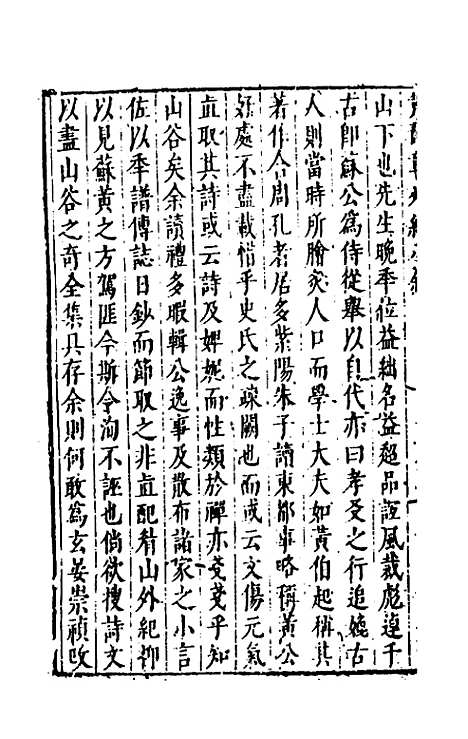 山下也先生晚年位益絀名益超品詣風裁彪遑千
古即蘇公爲侍從舉以自代亦曰孝友之行追媲古
人則當時所膾炙人口而學士大夫如黃伯起稱其
著作合周孔者居多紫陽朱子讀東都事略稱黃公
好處不盡載惜乎史氏之疎闕也而或云文傷元氣
直取其詩或云詩及婢娓而性類於禪亦戔戔乎知
山谷矣余讀禮多暇輯公逸事及散布諸家之小言
佐以年譜傳誌日鈔而節取之非直配眉山外紀抑
以見蘇黃之方駕匪今斯今洵不誣也倘欲搜詩文
以盡山谷之奇全集具存余則何敢爲玄晏崇禎改